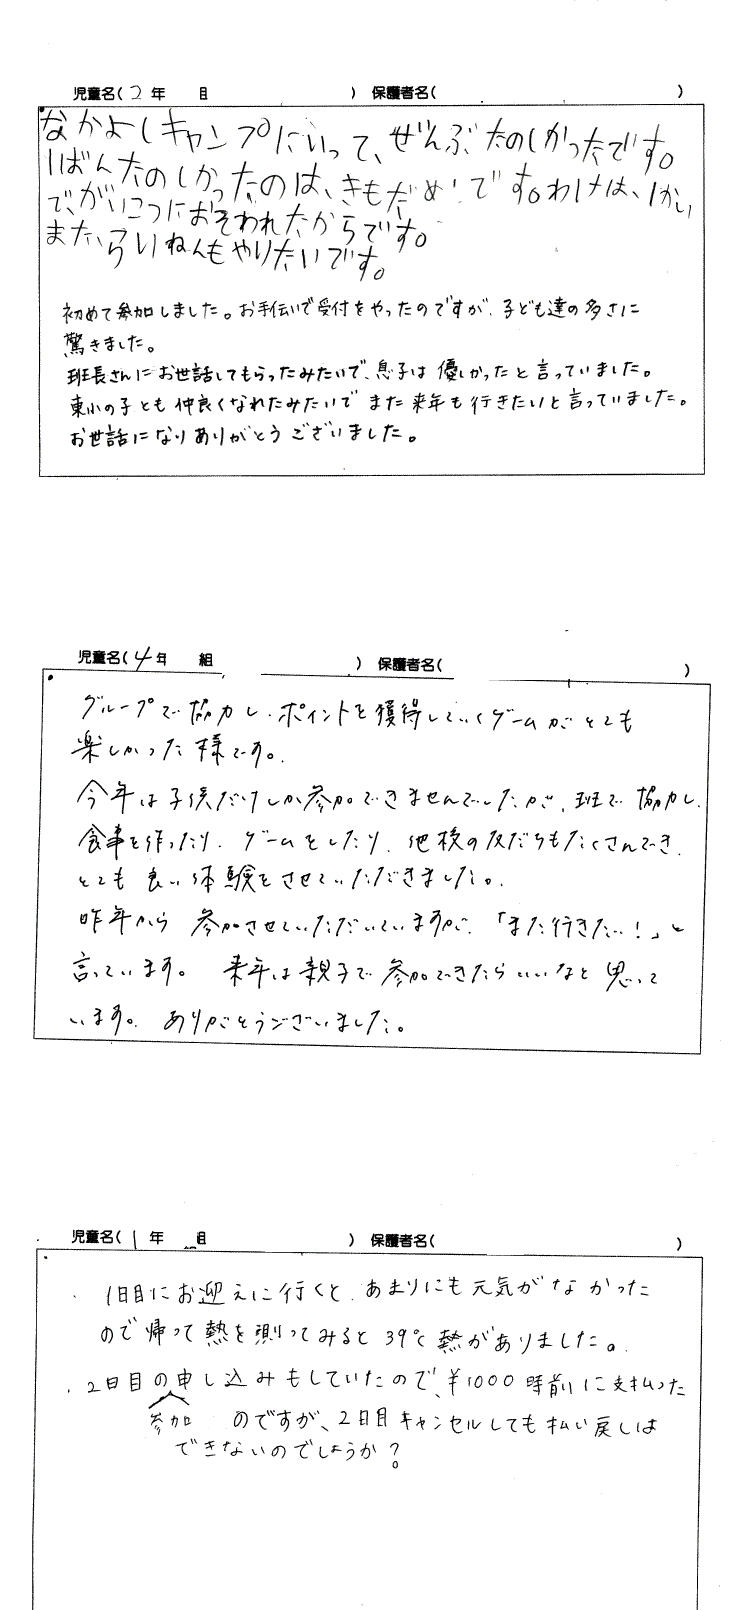 児童名(2年 組 ) 保護者名( )
なかよしキャンプにいって、ぜんぶたのしかったです。
1ばんたのしかったのは、きもだめしです。わけは、1かい
で、がいこつにおそわれたからです。
また、らいねんもやりたいです。
初めて参加しました。お手伝いで受付をやったのですが、子ども達の多さに
驚きました。
班長さんにお世話してもらったみたいで、息子は優しかったと言っていました。
東小の子とも仲良くなれたみたいでまた来年も行きたいと言っていました。
お世話になりありがとうございました。
児童名(4年 組 ) 保護者名( )
グループで協力し、ポイントを獲得していくゲームがとても
楽しかった様です。
今年は子供だけしか参加できませんでしたが、班で協力し、
食事を作ったり、ゲームをしたり、他校の友だちもたくさんでき、
とても良い体験をさせていただきました。
昨年から参加させていただいていますが、「また行きたい!」と
言っています。来年は親子で参加できたらいいなと思って
います。ありがとうございました。
児童名(1年 組 ) 保護者名( )
・1日目にお迎えに行くと、あまりにも元気がなかった
ので帰って熱を測ってみると39℃熱がありました。
・2日目の申し込みもしていたので、¥1000時前に支払った
参加 のですが、2日目キャンセルしても払い戻しは
できないのでしょうか?